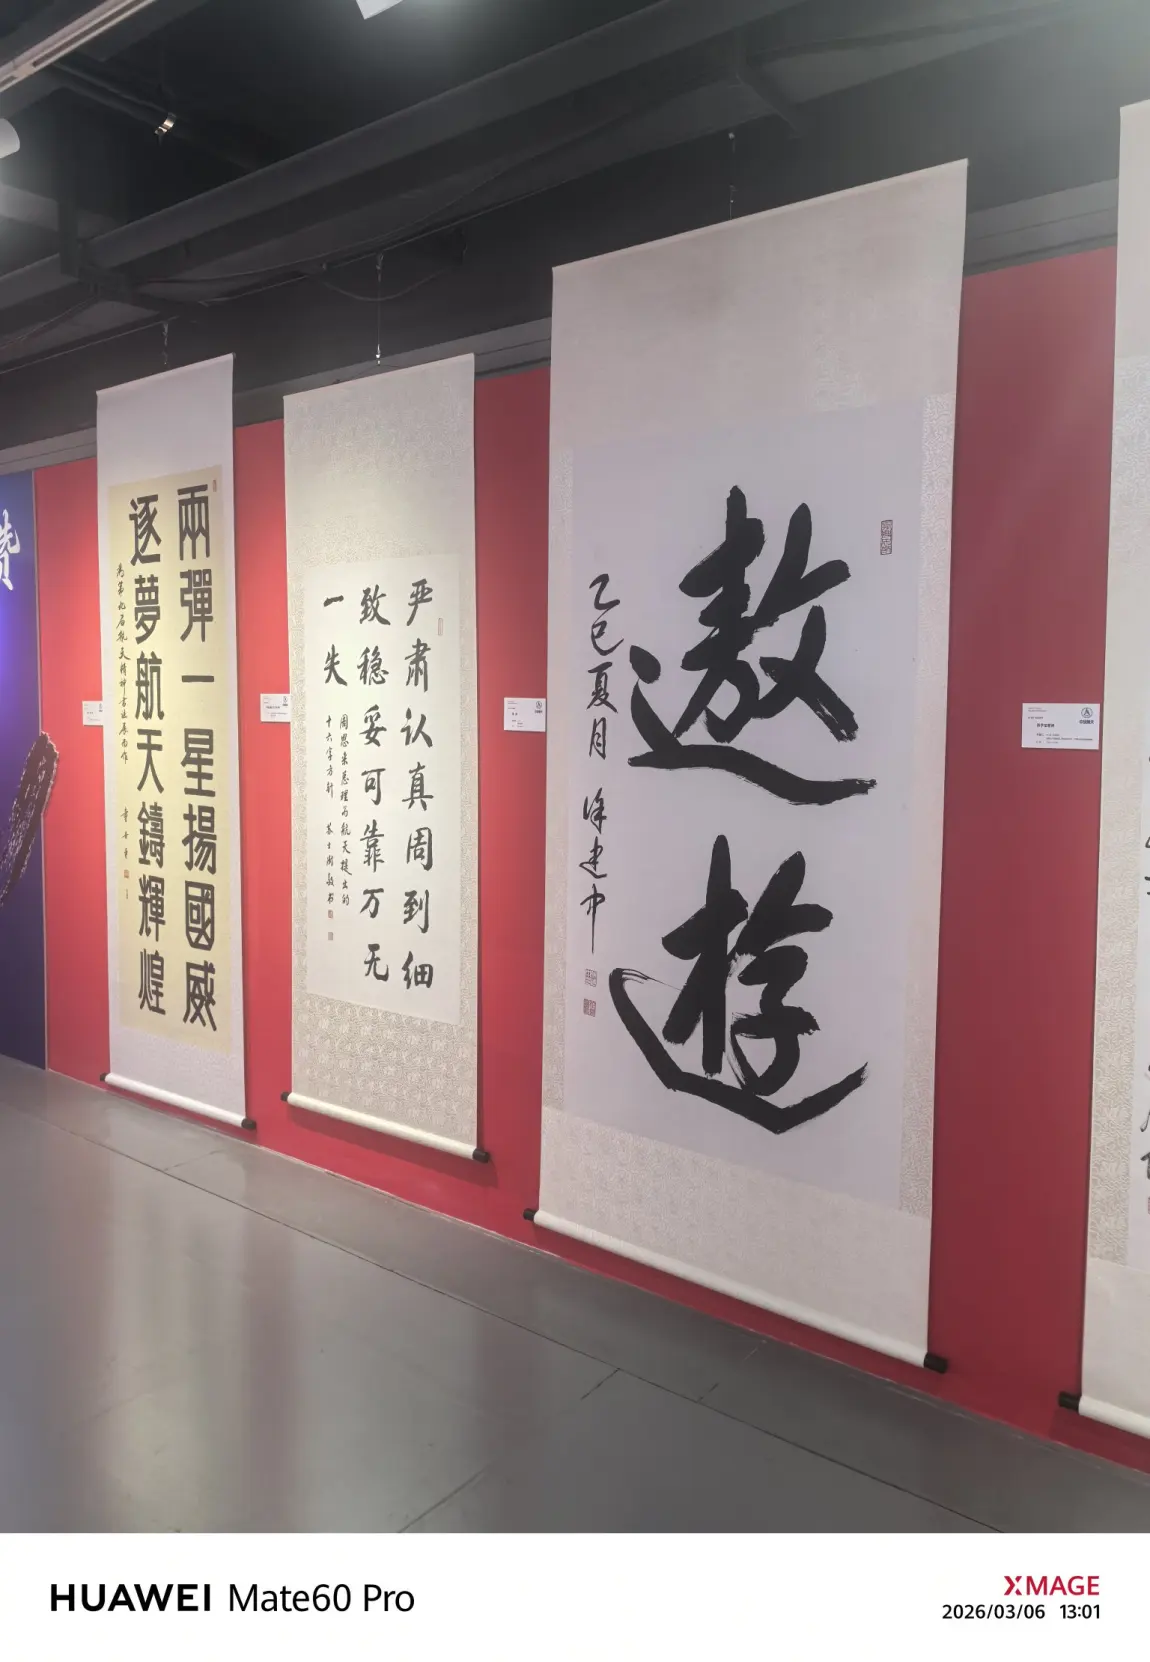 赞
兩彈一星揚國威
逐夢航天鑄輝煌
为第九届航天精神书法展而作
严肃认真周到细
致稳妥可靠万无
一失
周恩来总理为航天提出的
十六字方针
遨遊
乙巳夏月 徐建中
HUAWEI Mate60 Pro
XMAGE
2026/03/06 13:01